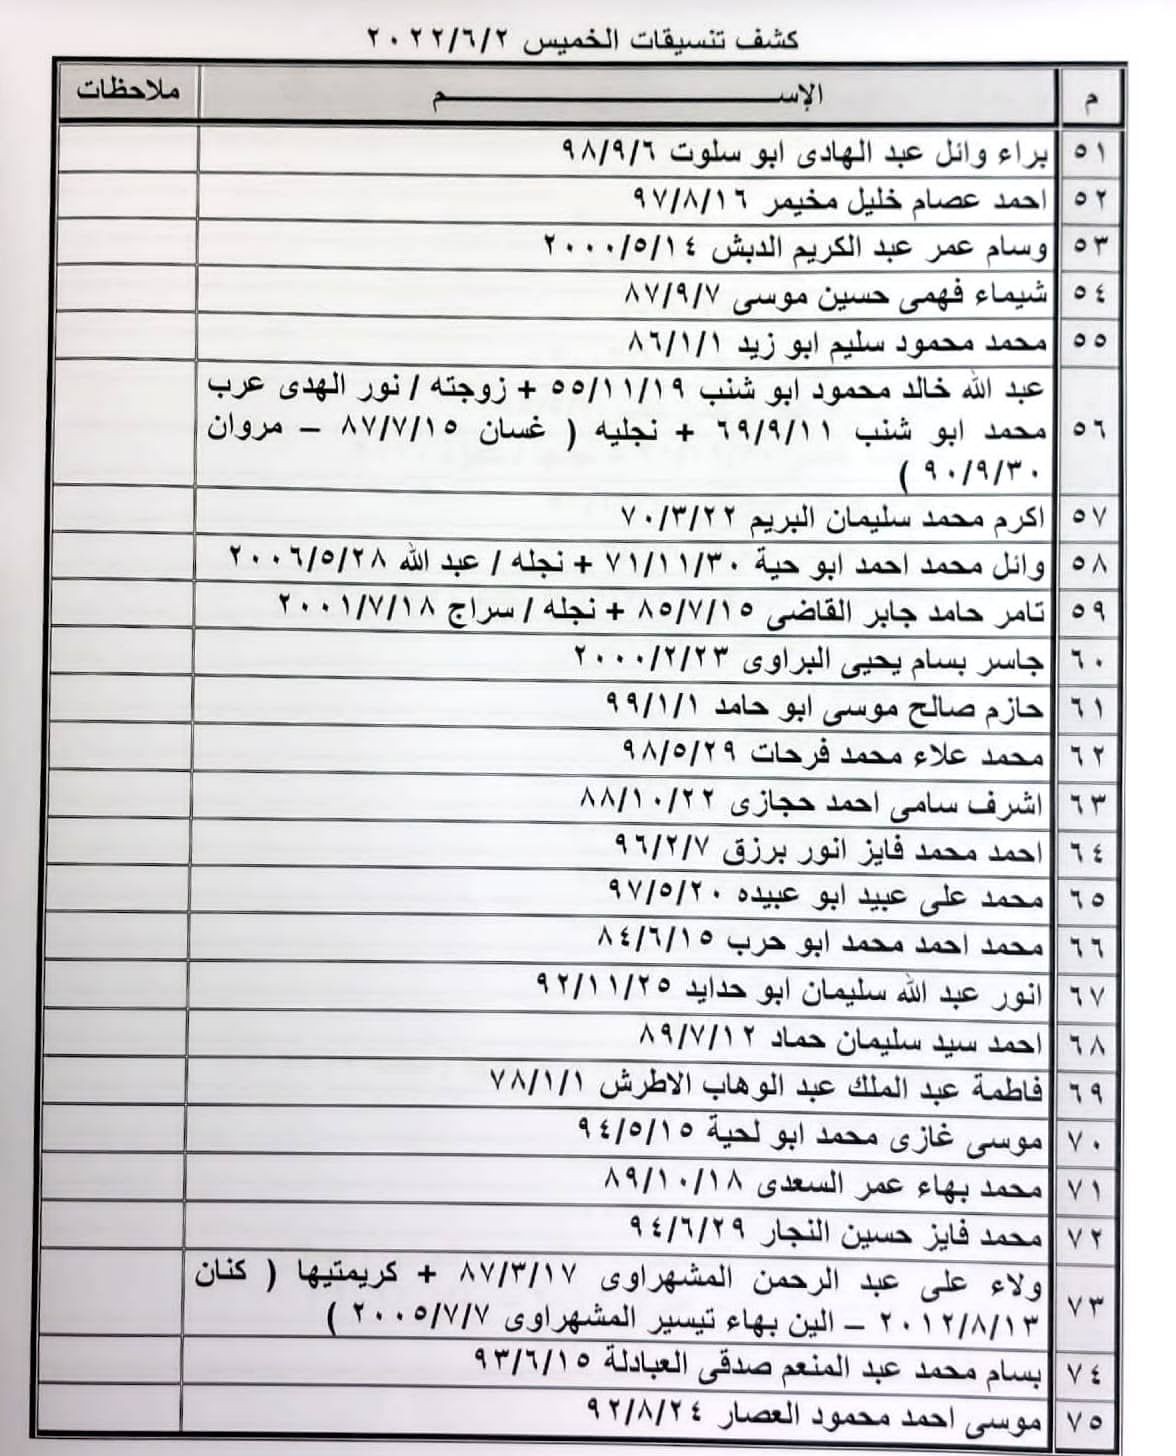 كشف تنسيقات الخميس ٢٠٢٢/٦/٢
م الإســــــم ملاحظات
٥١ براء وائل عبد الهادى ابو سلوت ٩٨/٩/٦
٥٢ احمد عصام خليل مخيمر ٩٧/٨/١٦
٥٣ وسام عمر عبد الكريم الدبش ٢٠٠٠/٥/١٤
٥٤ شيماء فهمى حسين موسى ٨٧/٩/٧
٥٥ محمد محمود سليم ابو زيد ٨٦/١/١
عبد الله خالد محمود ابو شنب ٥٥/١١/١٩ + زوجته / نور الهدى عرب
٥٦ محمد ابو شنب ٦٩/٩/١١ + نجليه ( غسان ٨٧/٧/١٥ – مروان
٩٠/٩/٣٠ )
٥٧ اكرم محمد سليمان البريم ٧٠/٣/٢٢
٥٨ وائل محمد احمد ابو حية ٧١/١١/٣٠ + نجله / عبد الله ٢٠٠٦/٥/٢٨
٥٩ تامر حامد جابر القاضى ٨٥/٧/١٥ + نجله / سراج ٢٠٠١/٧/١٨
٦٠ جاسر بسام يحيى البراوى ٢٠٠٠/٢/٢٣
٦١ حازم صالح موسى ابو حامد ٩٩/١/١
٦٢ محمد علاء محمد فرحات ٩٨/٥/٢٩
٦٣ اشرف سامى احمد حجازى ٨٨/١٠/٢٢
٦٤ احمد محمد فايز انور برزق ٩٦/٢/٧
٦٥ محمد على عبيد ابو عبيده ٩٧/٥/٢٠
٦٦ محمد احمد محمد ابو حرب ٨٤/٦/١٥
٦٧ انور عبد الله سليمان ابو حدايد ٩٢/١١/٢٥
٦٨ احمد سيد سليمان حماد ٨٩/٧/١٢
٦٩ فاطمة عبد الملك عبد الوهاب الاطرش ٧٨/١/١
٧٠ موسى غازى محمد ابو لحية ٩٤/٥/١٥
٧١ محمد بهاء عمر السعدى ٨٩/١٠/١٨
٧٢ محمد فايز حسين النجار ٩٤/٦/٢٩
٧٣ ولاء على عبد الرحمن المشهراوى ٨٧/٣/١٧ + كريمتيها ( كنان
٢٠١٢/٨/١٣ – الين بهاء تيسير المشهراوى ٢٠٠٥/٧/٧ )
٧٤ بسام محمد عبد المنعم صدقى العبادلة ٩٣/٦/١٥
٧٥ موسى احمد محمود العصار ٩٢/٨/٢٤